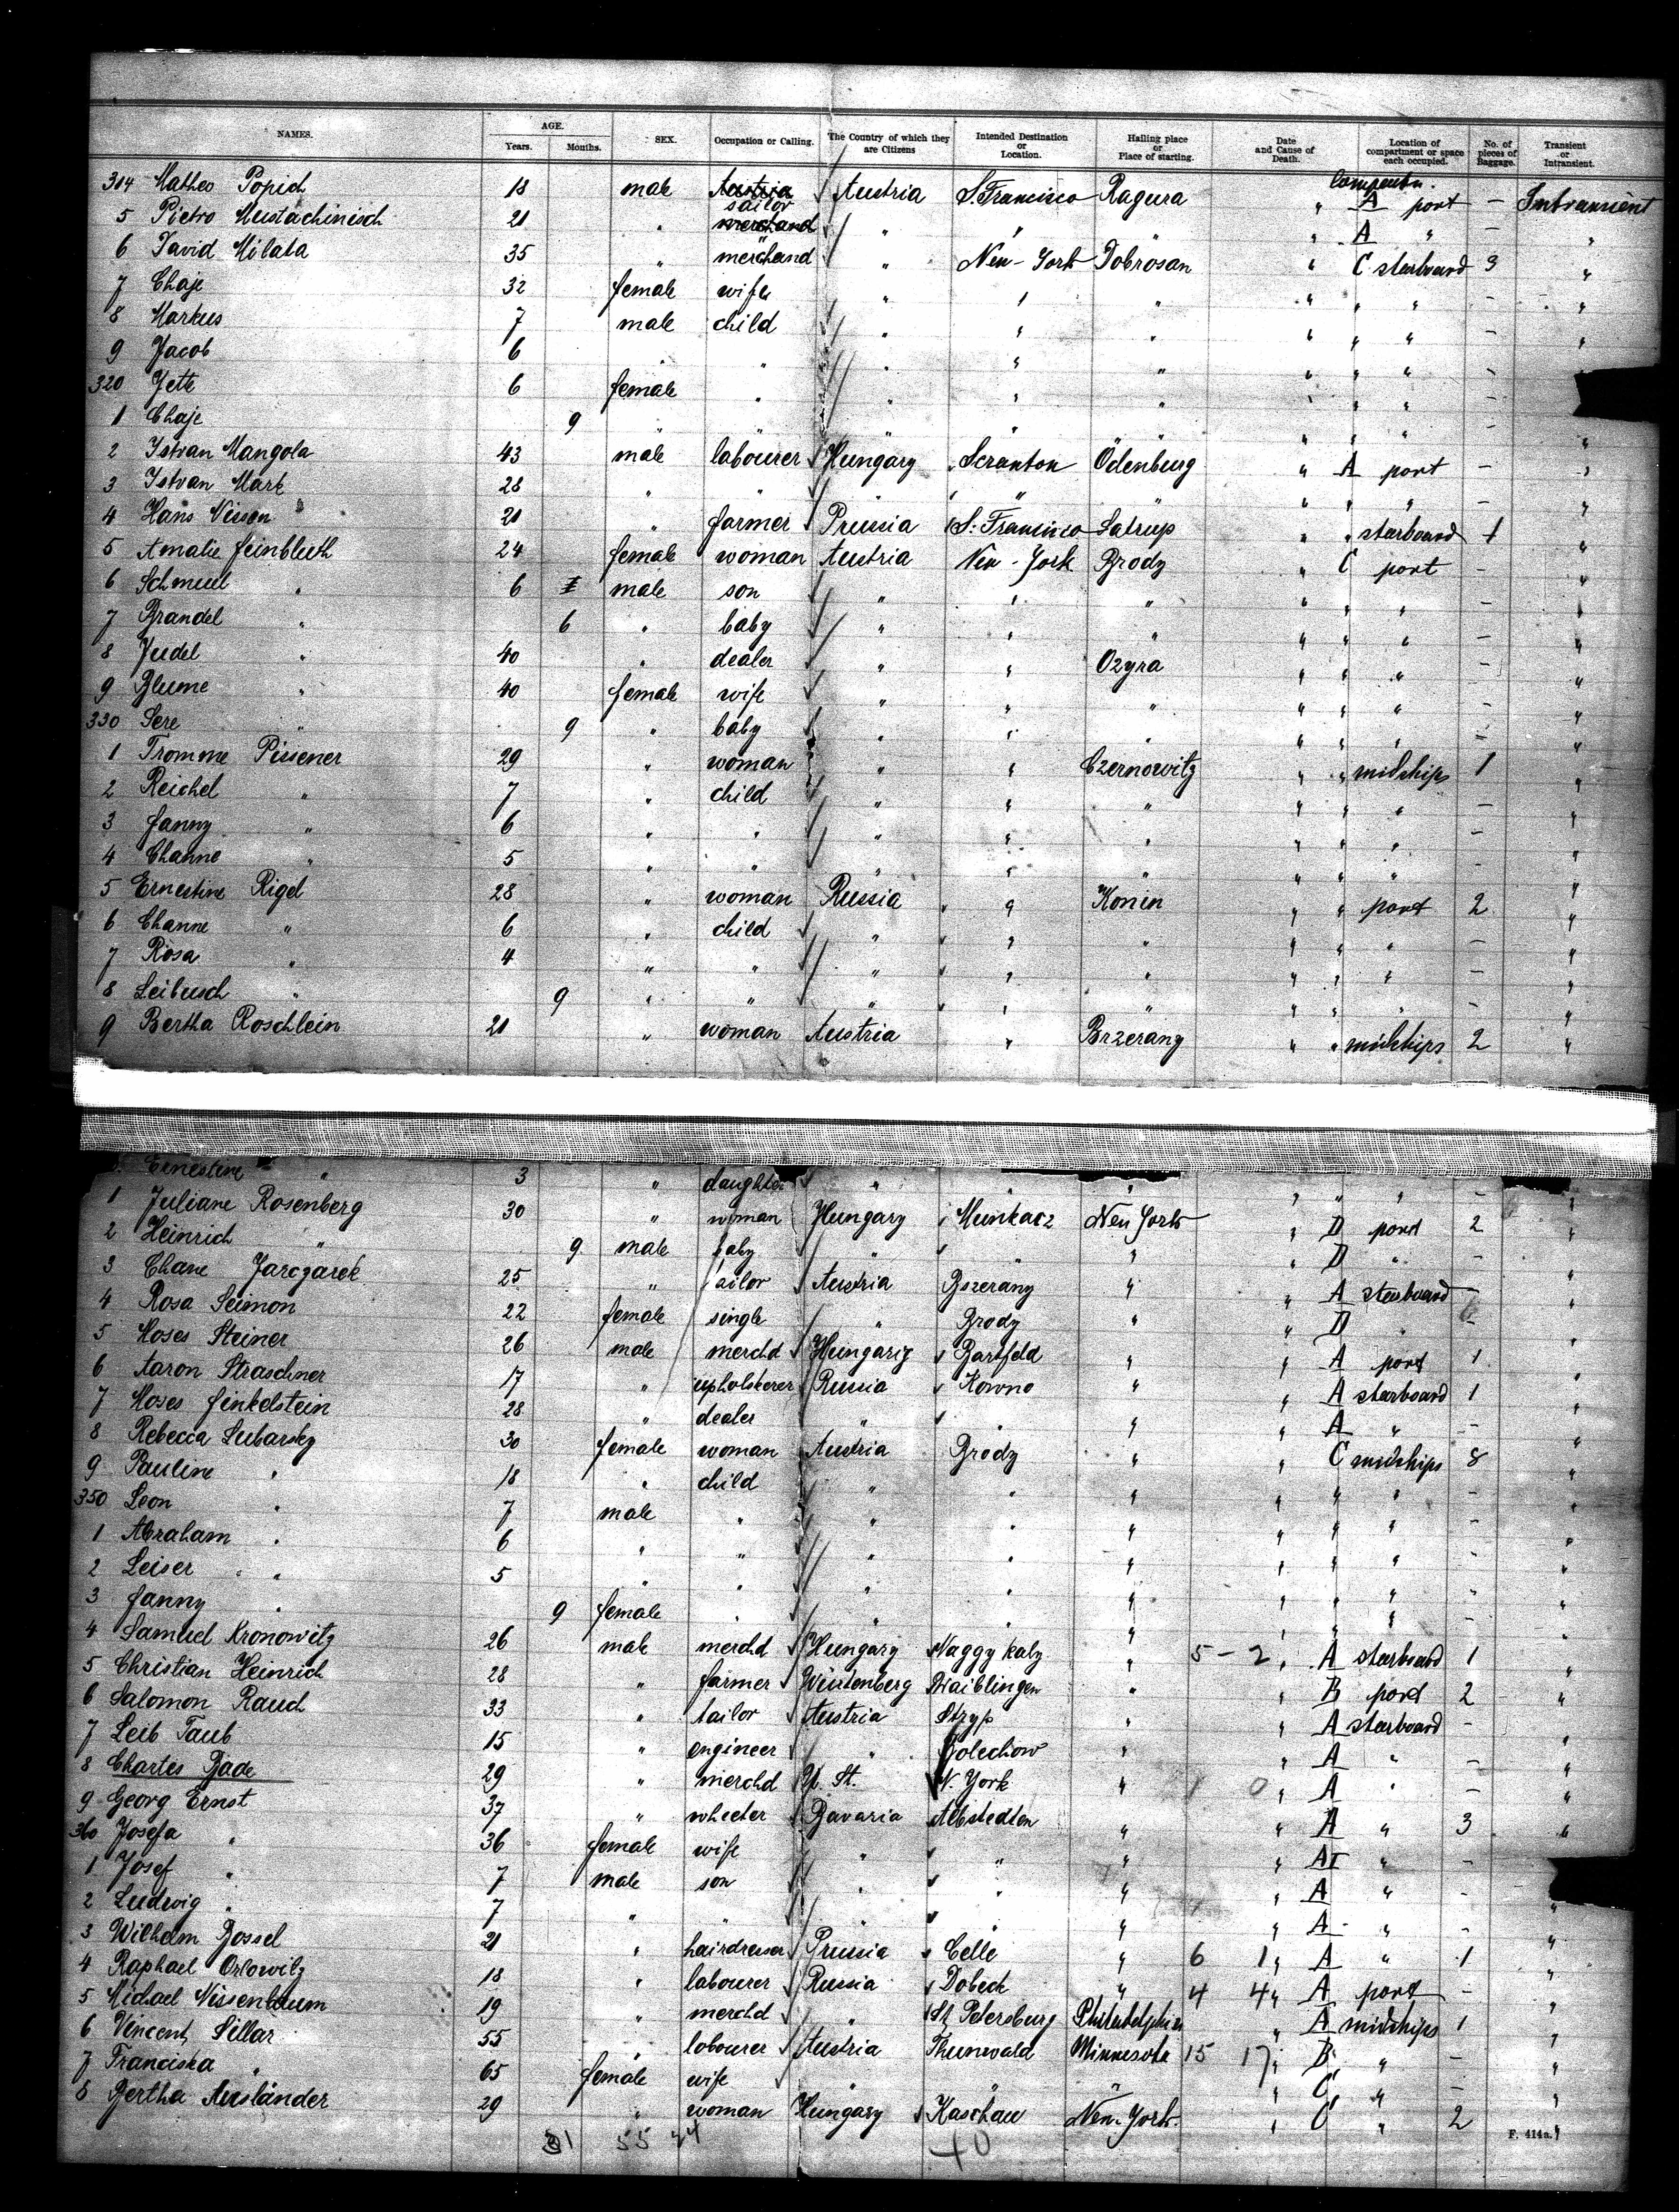 NAMES. AGE. Years. Months. SEX. Occupation or Calling. The Country of which they are Citizens Intended Destination or Location. Hailing place or Place of starting. Date and Cause of Death. Location of compartment or space each occupied. No. of pieces of Baggage. Transient or Intransient.
314 Matheo Popich 18 male Austria sailor Austria S. Francisco Ragura " A port - Intransient
5 Pietro Mustachinisch 21 " merchand " " " " " A " - "
6 David Milata 35 " merchand " New-York Dobrosan " C starboard 9 "
7 Chaje 32 female wife " " " " " " - "
8 Markus 7 male child " " " " " " - "
9 Jacob 6 " " " " " " " " - "
320 Jette 6 female " " " " " " " - "
1 Chaje 9 " " " " " " " " "
2 Istvan Mangola 43 male labourer Hungary Scranton Ödenburg " A port - "
3 Istvan Mark 28 " " " " " " " " - "
4 Hans Nissen 21 " farmer Prussia S. Francisco Satrup " " starboard 1 "
5 Amalie Feinbluth 24 female woman Austria New-York Brody " C port - "
6 Schmuel " 6 male son " " " " " " - "
7 Brandel " 6 " baby " " " " " " - "
8 Judel " 40 " dealer " " Ozyra " " " - "
9 Blume " 40 female wife " " " " " " - "
330 Sere " 9 " baby " " " " " " - "
1 Fromme Pissener 29 " woman " " Czernowitz " " midships 1 "
2 Reichel " 7 " child " " " " " " - "
3 Fanny " 6 " " " " " " " " - "
4 Channe " 5 " " " " " " " " - "
5 Ernestine Rigel 28 " woman Russia " Konin " " port 2 "
6 Channe " 6 " child " " " " " " - "
7 Rosa " 4 " " " " " " " " - "
8 Leibusch " 9 " " " " " " " " - "
9 Bertha Roschlein 21 " woman Austria " Brzerany " " midships 2 "
Ernestine " 3 " daughter " " " " " " - "
1 Juliane Rosenberg 30 " woman Hungary Munkacz New York " D port 2 "
2 Heinrich " 9 male baby " " " " D " - "
3 Chane Jarczarek 25 " tailor Austria Bszerany " " A starboard - "
4 Rosa Seimon 22 female single " Brody " " D " - "
5 Moses Steiner 26 male merchd Hungarig Bartfeld " " A port 1 "
6 Aaron Straschner 17 " upholsterer Russia Kowno " " A starboard 1 "
7 Moses Finkelstein 28 " dealer " " " " A " - "
8 Rebecca Lubarsky 30 female woman Austria Brody " " C midships 8 "
9 Pauline " 18 " child " " " " " " - "
350 Leon " 7 male " " " " " " " - "
1 Abraham " 6 " " " " " " " " - "
2 Leiser " 5 " " " " " " " " - "
3 Fanny " 9 female " " " " " " " - "
4 Samuel Kronowitz 26 male merchd Hungary Naggy kaly " 5-2 " A starboard 1 "
5 Christian Heinrich 28 " farmer Würtenberg Waiblingen " " B port 2 "
6 Salomon Rauch 33 " tailor Austria Stryp " " A starboard - "
7 Leib Taub 15 " engineer " Bolechow " " A " - "
8 Charles Bade 29 " merchd U. St. N. York " 1 0 " A " - "
9 Georg Ernst 37 " wheeler Bavaria Albstedten " " A " 3 "
360 Josefa " 36 female wife " " " " A " - "
1 Josef " 7 male son " " " " A " - "
2 Ludwig " 7 " " " " " " A " - "
3 Wilhelm Bossel 21 " hairdresser Prussia Celle " 6 1 " A " 1 "
4 Raphael Orlowitz 18 " labourer Russia Dobeck " 4 4 " A port - "
5 Michael Nissenbaum 19 " merchd " St Petersburg Philadelphia " A midships 1 "
6 Vincent Sillar 55 " labourer Austria Thunwald Minnesota 15 17 " B " - "
7 Franciska " 65 female wife " " " " C " - "
8 Bertha Ausländer 29 " woman Hungary Kaschau New-York " C " 2 "
31 55 24 40 F. 414a.